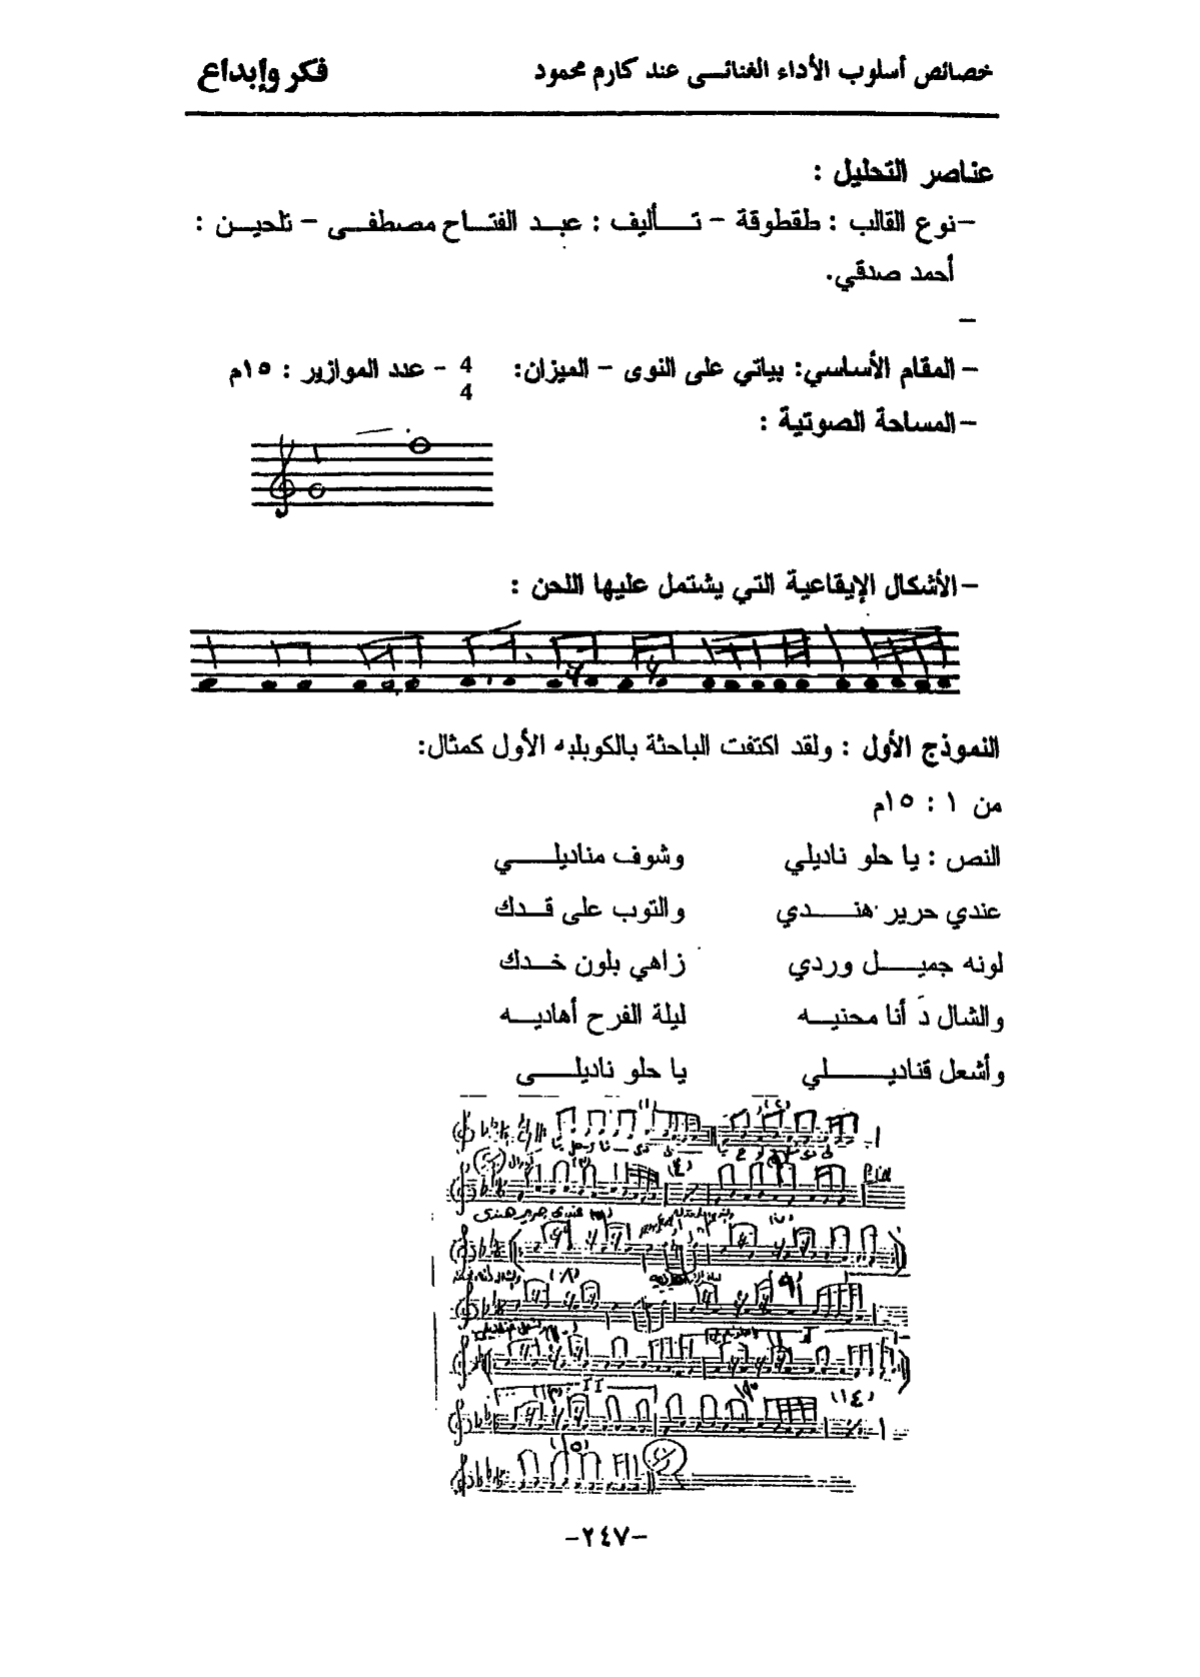 خصائص أسلوب الأداء الغنائى عند كارم محمود
فكر وإبداع
عناصر التحليل :
–نوع القالب : طقطوقة – تأليف : عبد الفتاح مصطفى – تلحين :
أحمد صدقي.
–
– المقام الأساسي: بياتي على النوى – الميزان: 4 4 - عدد الموازير : ١٥م
–المساحة الصوتية :
–الأشكال الإيقاعية التي يشتمل عليها اللحن :
النموذج الأول : ولقد اكتفت الباحثة بالكوبليه الأول كمثال:
من ١ : ١٥م
النص : يا حلو ناديلي وشوف مناديلي
عندي حرير هندي والتوب على قدك
لونه جميل وردي زاهي بلون خدك
والشال دَ أنا محنيه ليلة الفرح أهاديه
وأشعل قناديلي يا حلو ناديلى
(١) (٢)
(٣) (٤)
عندى حرير هندى
(٨) (٩)
II
(١٤)
(١٥)
–٢٤٧–